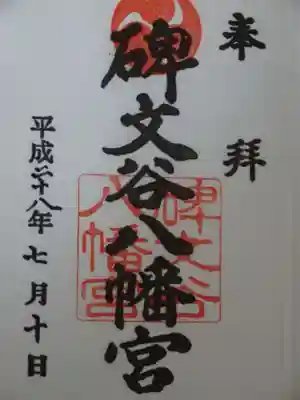 奉拝
碑文谷八幡宮
碑文谷
八幡宮
平成二十八年七月十日